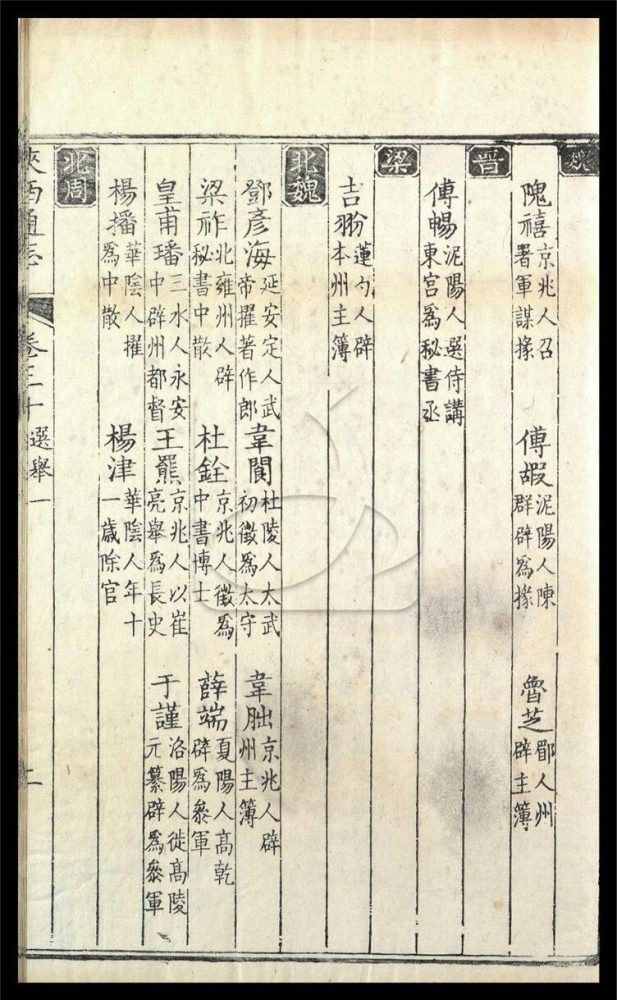 魏
隗禧 京兆人召署軍謀掾 傅嘏 泥陽人陳群辟為掾 魯芝 郿人州辟主簿
晉
傅暢 泥陽人選侍講東宮為秘書丞
梁
吉翂 蓮勺人辟本州主簿
北魏
鄧彥海 延安定人武帝擢著作郎 韋閬 杜陵人太武初徵為太守 韋朏 京兆人辟州主簿
梁祚 北雍州人辟秘書中散 杜銓 京兆人徵為中書博士 薛端 夏陽人高乾辟為叅軍
皇甫璠 三水人永安中辟州都督 王羆 京兆人以崔亮舉為長史 于謹 洛陽人徙高陵元纂辟為叅軍
楊播 華陰人擢為中散 楊津 華陰人年十一歲除官
北周
陝西通志 卷三十 選舉一